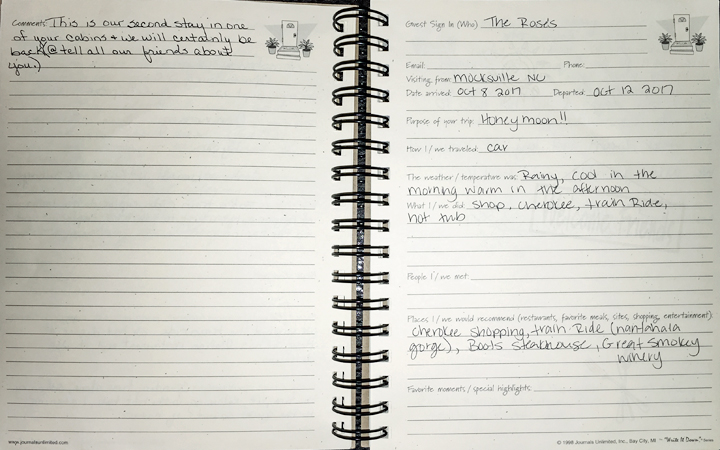 Comments: This is our second stay in one
of your cabins + we will certainly be
back (@ tell all our friends about
you.)
www.journalsunlimited.com
Guest Sign In (Who) The Roses
Email: Phone:
Visiting from Mocksville NC
Date arrived: Oct 8 2017 Departed: Oct 12 2017
Purpose of your trip: Honeymoon!!
How I/we traveled: car
The weather/temperature was: Rainy, cool in the
morning warm in the afternoon
What I/we did: shop, cherokee, train Ride,
hot tub
People I/we met:
Places I/we would recommend (restaurants, favorite meals, sites, shopping, entertainment):
cherokee shopping, train Ride (nantahala
gorge), Boots steakhouse, Great Smokey
winery
Favorite moments/special highlights:
© 1998 Journals Unlimited, Inc., Bay City, MI ~ "Write It Down!"